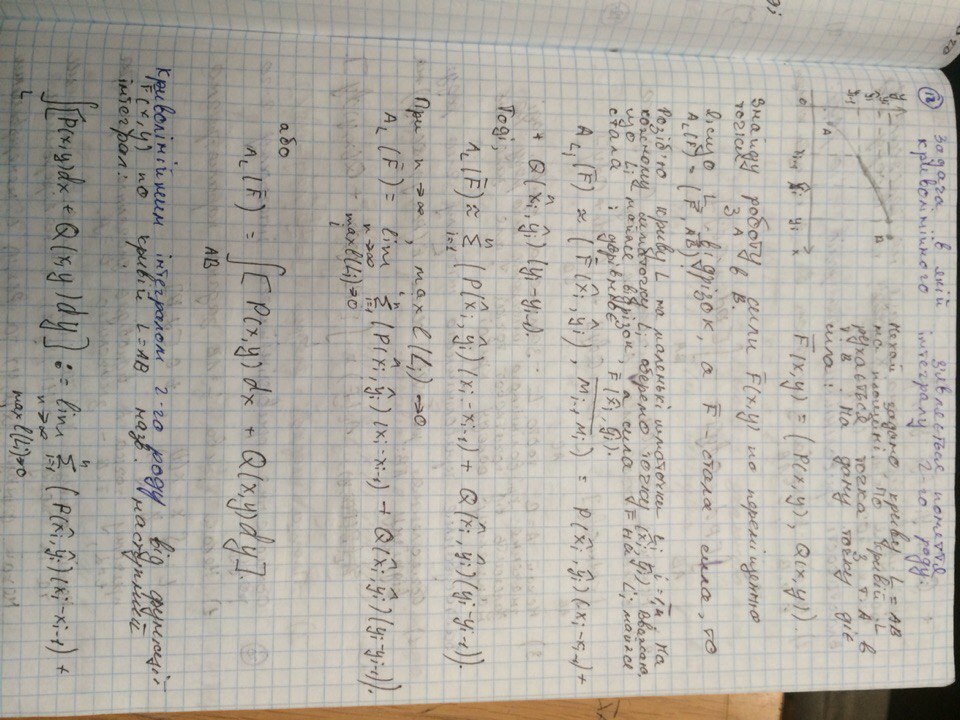 18 Задача в якій з'являється поняття
криволінійного інтегралу 2-го роду.
Нехай задано криву L = AB
на площині. По кривій L
рухається точка з т. A в
т. B. На дану точку діє
сила:
F̅(x,y) = (P(x,y), Q(x,y)).
A B
0 x_{i-1} x̂_i y_i x
Знайду роботу сили F̅(x,y) по переміщенню
точки з A в B.
Якщо L - відрізок, а F̅ - стала сила, то
A_L(F̅) = (F̅, A̅B̅).
Розіб'ю криву L на маленькі шматочки L_i, i=1,n. На
кожному шматочку L_i оберемо точку (x̂_i, ŷ_i). Вважаю,
що L_i майже відрізок, а сила F̅ на L_i майже
стала і дорівнює F̅(x̂_i, ŷ_i).
A_{L_i}(F̅) ≈ (F̅(x̂_i, ŷ_i), \overline{M_{i-1}M_i}) = P(x̂_i, ŷ_i)(x_i-x_{i-1}) +
+ Q(x̂_i, ŷ_i)(y_i-y_{i-1}).
Тоді,
A_L(F̅) ≈ ∑_{i=1}^{n} (P(x̂_i, ŷ_i)(x_i-x_{i-1}) + Q(x̂_i, ŷ_i)(y_i-y_{i-1})).
При n→∞, max l(L_i)→0
A_L(F̅) = lim ∑_{i=1}^{n} (P(x̂_i, ŷ_i)(x_i-x_{i-1}) + Q(x̂_i, ŷ_i)(y_i-y_{i-1})).
n→∞
max l(L_i)→0
i
або
A_L(F̅) = ∫_{AB} [P(x,y)dx + Q(x,y)dy].
Криволінійним інтегралом 2-го роду від функції
F̅(x,y) по кривій L=AB назв. наступний
інтеграл:
∫_L [P(x,y)dx + Q(x,y)dy] := lim ∑_{i=1}^{n} (P(x̂_i, ŷ_i)(x_i-x_{i-1}) +
n→∞
max l(L_i)→0